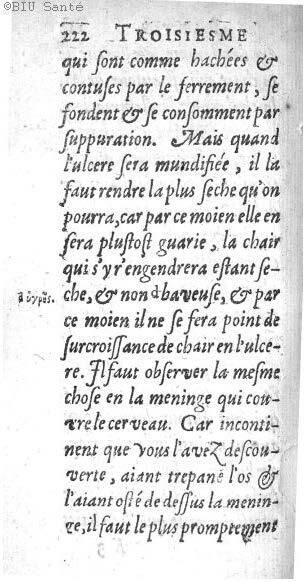 ©BIU Santé
222 TROISIESME
qui sont comme hachées &
contuses par le ferrement, se
fondent & se consomment par
suppuration. Mais quand
l'ulcere sera mundifiée, il la
faut rendre la plus seche qu'on
pourra, car par ce moien elle en
sera plustost guarie, la chair
qui s'y r'engendrera estant se-
che, & non baveuse, & par
ce moien il ne se fera point de
surcroissance de chair en l'ulce-
re. Il faut observer la mesme
chose en la meninge qui cou-
vre le cerveau. Car inconti-
nent que vous l'avez descou-
verte, aiant trepané l'os &
l'aiant osté de dessus la menin-
ge, il faut le plus promptement